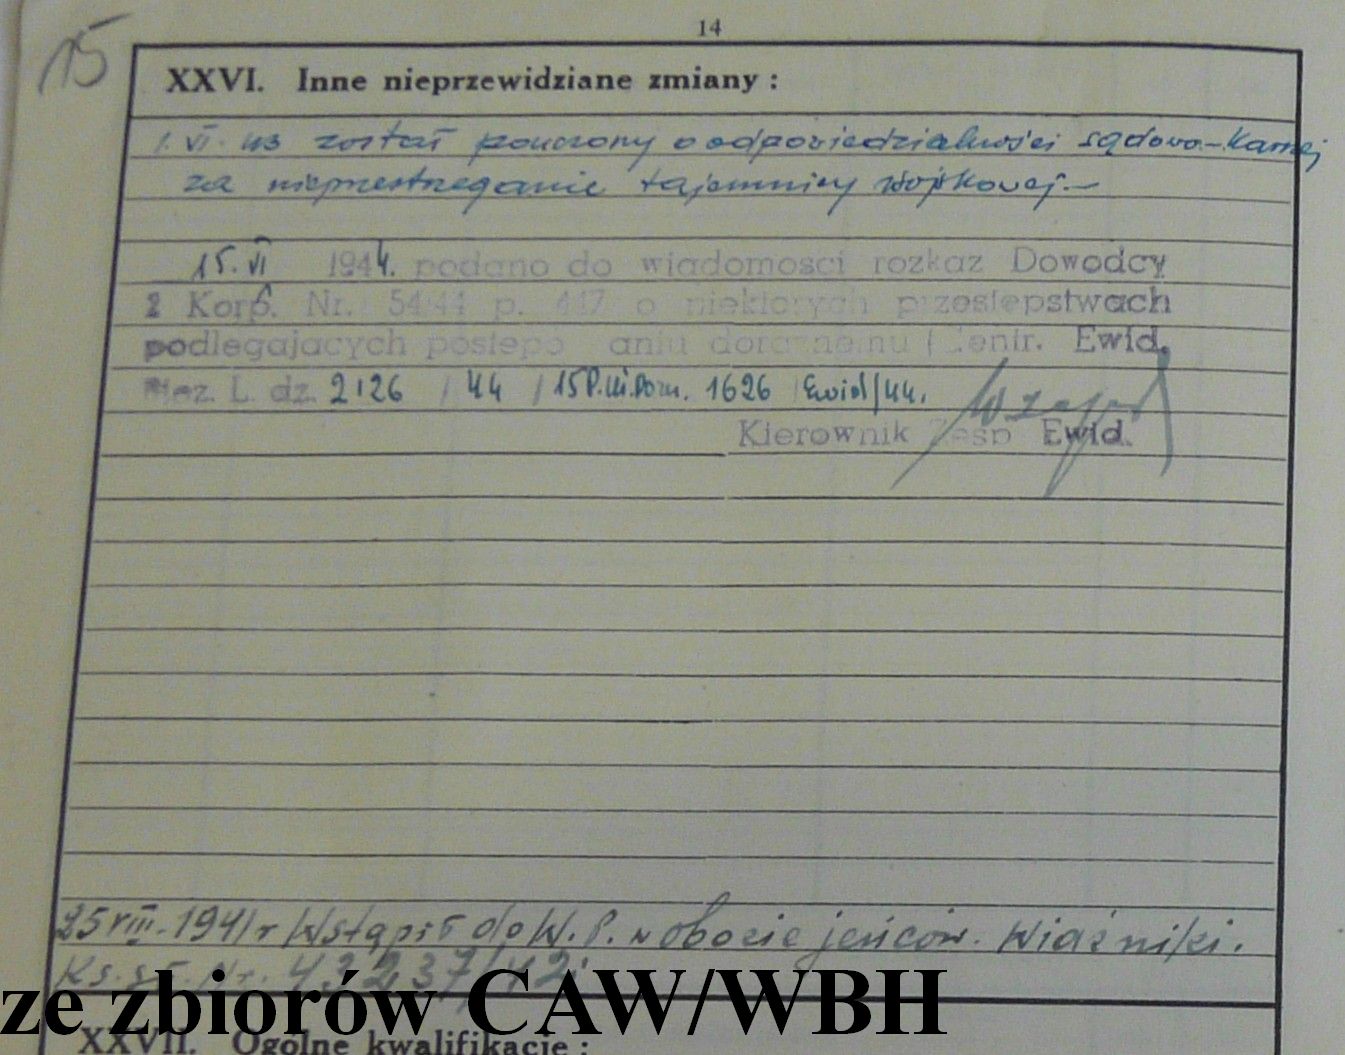 14
15
XXVI. Inne nieprzewidziane zmiany :
1. VI. 43 został pouczony o odpowiedzialności sądowo-karnej
za nieprzestrzeganie tajemnicy wojskowej.—
15. VI 1944. podano do wiadomości rozkaz Dowodcy
2 Korp. Nr. 54/44 p. 447 o niektorych przestepstwach
podlegajacych postepo aniu doraznemu (Centr. Ewid.
L. dz. 2126 / 44 / 15 P. Uł. Pozn. 1626 Ewid/44.
Kierownik Zesp Ewid.
25 VIII. 1941 r Wstąpił do W. P. w obozie jeńców. Wiaźniki.
Ks. gł. Nr. 43237/42.
ze zbiorów CAW/WBH
XXVII. Ogólne kwalifikacje :